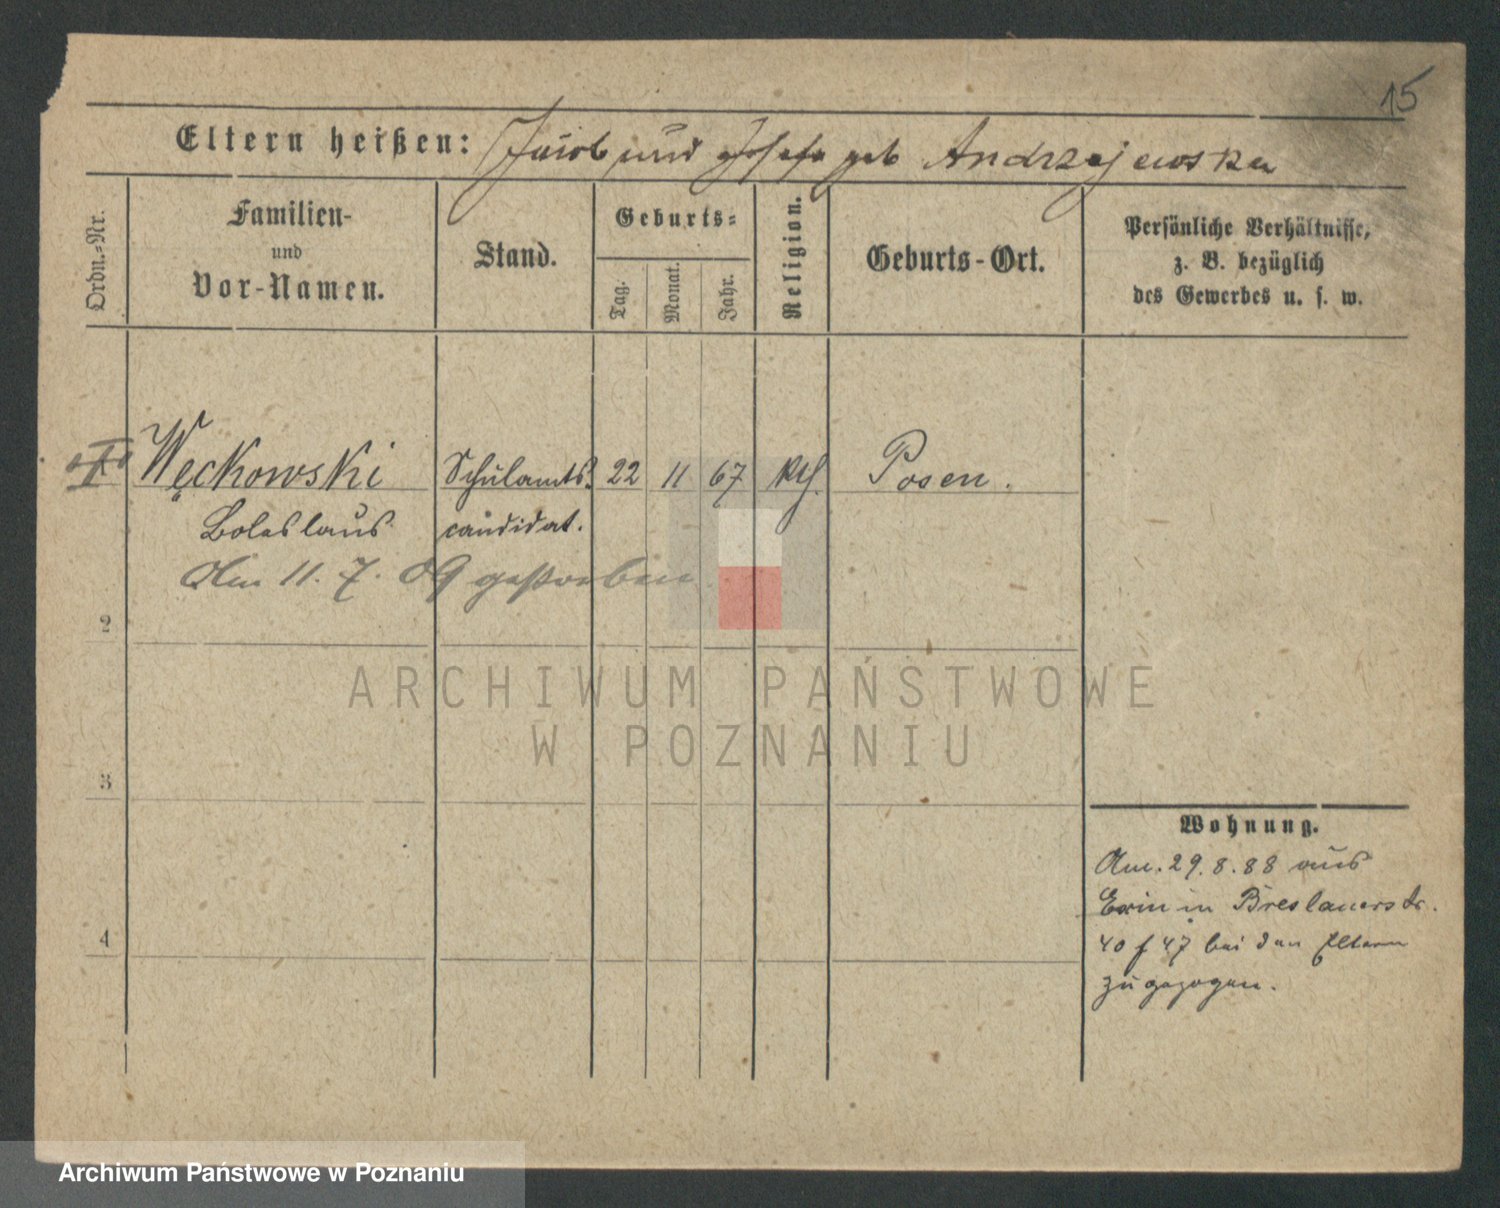 15
Eltern heißen: Jacob und Josefa geb Andrzejewska
Ordn.-Nr.
Familien-
und
Vor-Namen.
Stand.
Geburts-
Tag.
Monat.
Jahr.
Religion.
Geburts-Ort.
Persönliche Verhältnisse,
z. B. bezüglich
des Gewerbes u. s. w.
Węckowski Schulamts- 22 11 67 kth. Posen.
Boleslaus candidat.
Am 11. 7. 09 gestorben
2
3
4
Wohnung.
Am. 29. 8. 88 aus
Exin in Breslauerstr.
40 f 47 bei den Eltern
zugezogen.
ARCHIWUM PAŃSTWOWE
W POZNANIU
Archiwum Państwowe w Poznaniu